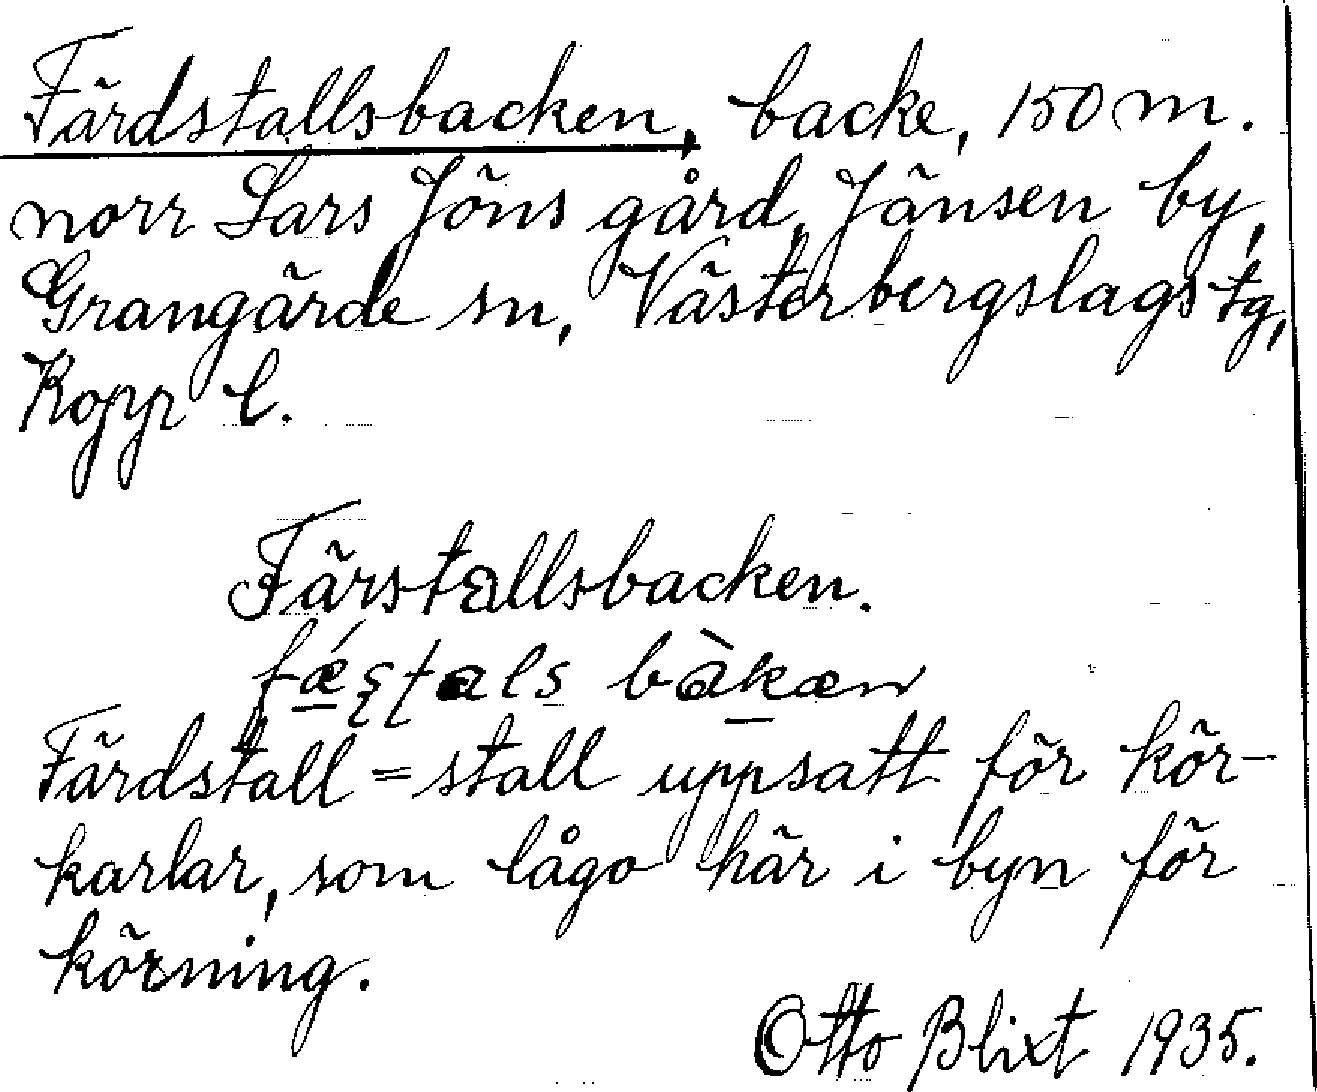 Färdstallsbacken, backe, 150 m.
norr Lars Jöns gård, Jänsen by,
Grangärde sn, Västerbergslags tg,
Kopp l.
Färstallsbacken.
fǽʂʈals bàkæn
Färdstall = stall uppsatt för kör-
karlar, som lågo här i byn för
körning.
Otto Blixt 1935.